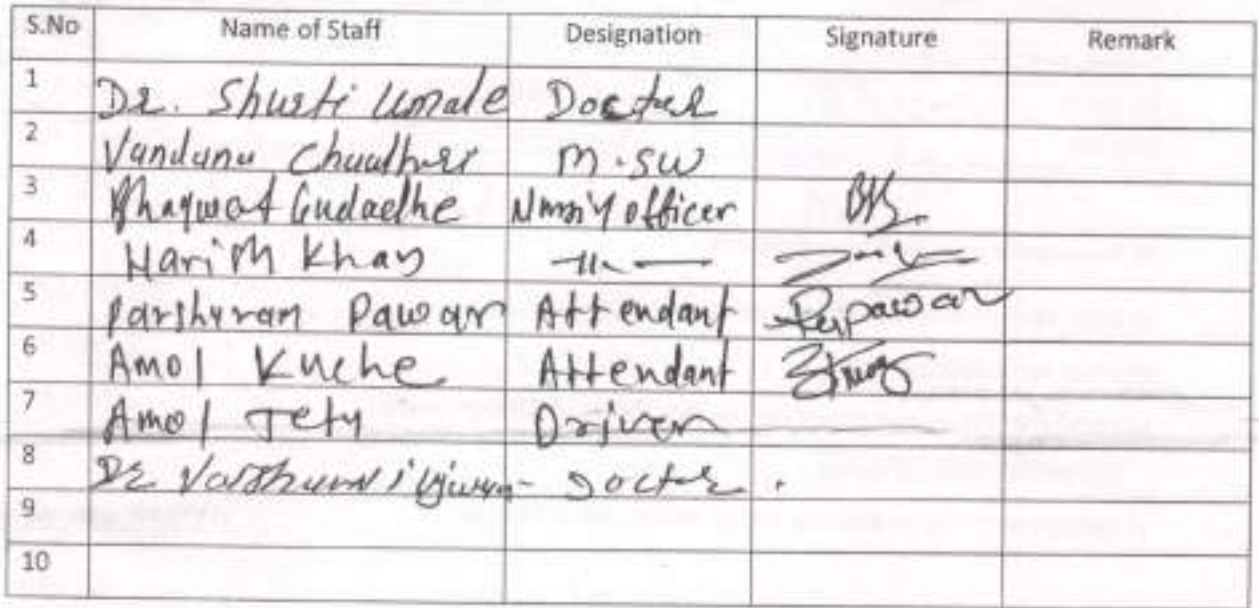 S.No Name of Staff Designation Signature Remark
1 Dr. Shruti Umale Doctor
2 Vandana Chaudhari M.SW
3 Bhagwat Gudadhe Nursing officer
4 Harim Khan -11-
5 Parshuram Pawar Attendant Pawar
6 Amol Kuche Attendant
7 Amol Driver
8 Dr Doctor
9
10